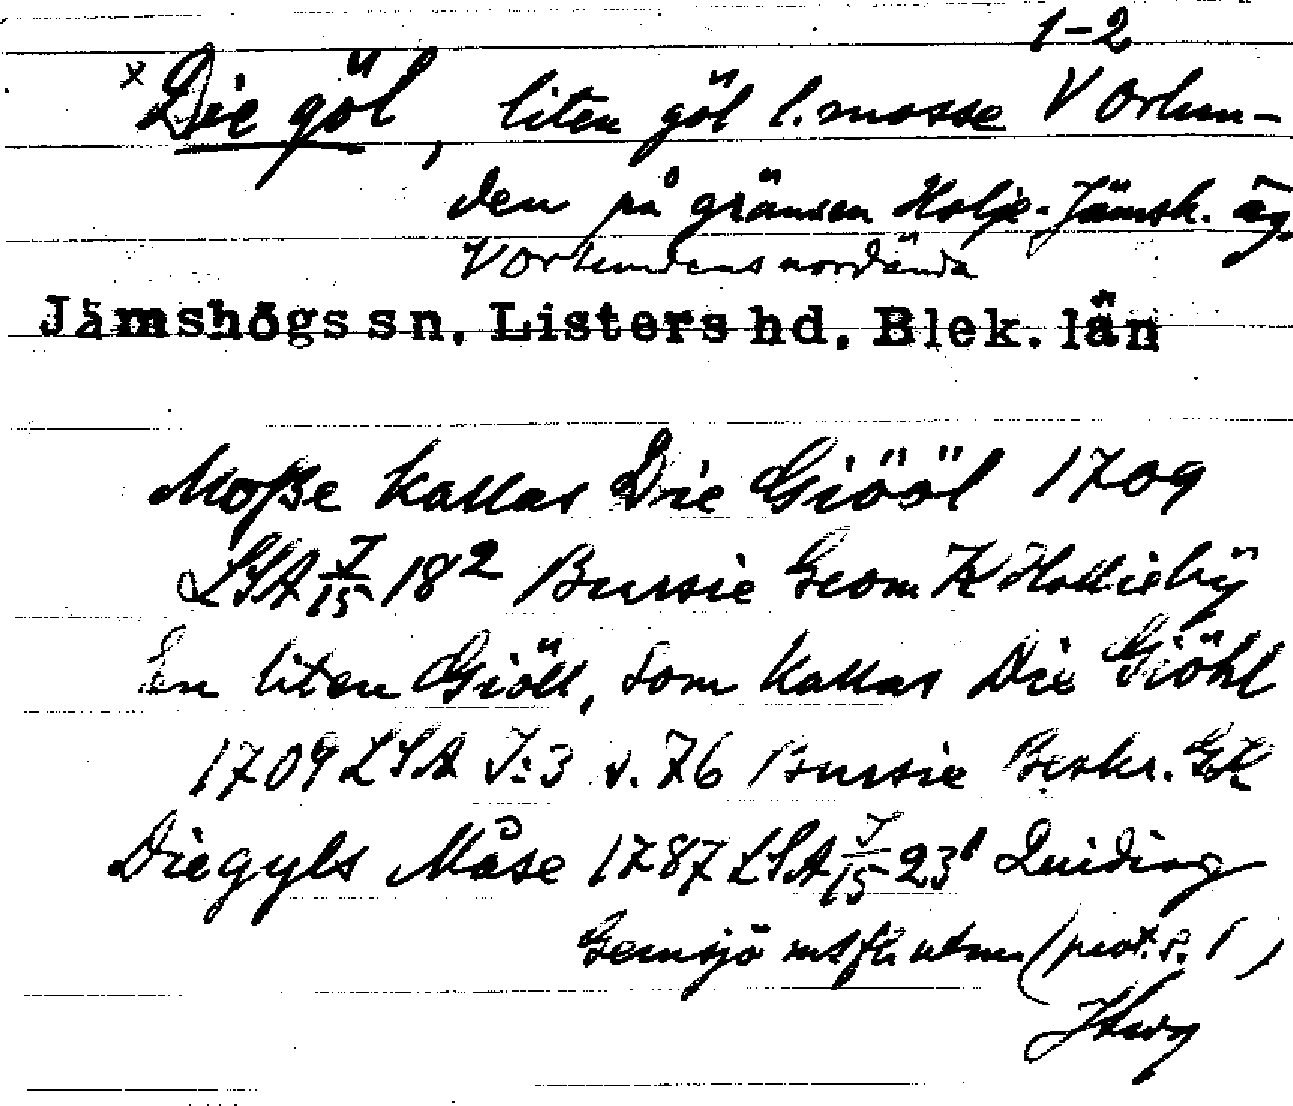 1-2
x Die göl, liten göl l. mosse V Orlun-
den på gränsen Holje-Jämsh. äg.
V Orlundens nordända
Jämshögs sn. Listers hd. Blek. län
Moße kallas Die Giööl 1709
LSA J/15 18² Bursie Geom K Hollieby
En liten Giöll, som kallas Die Giöhl
1709 LSA J:3 s. 76 Bursie Beskr. GK
Diegyls Måse 1787 LSA J/15 23¹ Quiding
Gemsjö utm. (prot. s. 1)